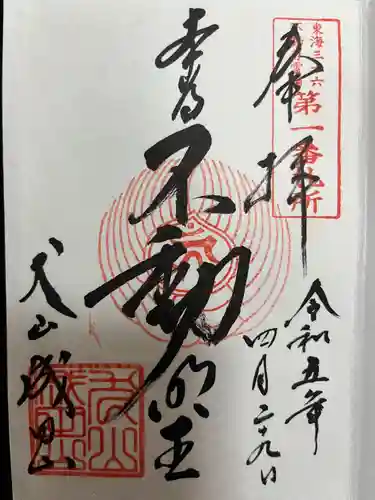 奉拝
東海三十六
不動尊霊場
第一番札所
令和五年
四月二十九日
本尊
不動明王
犬山成田山